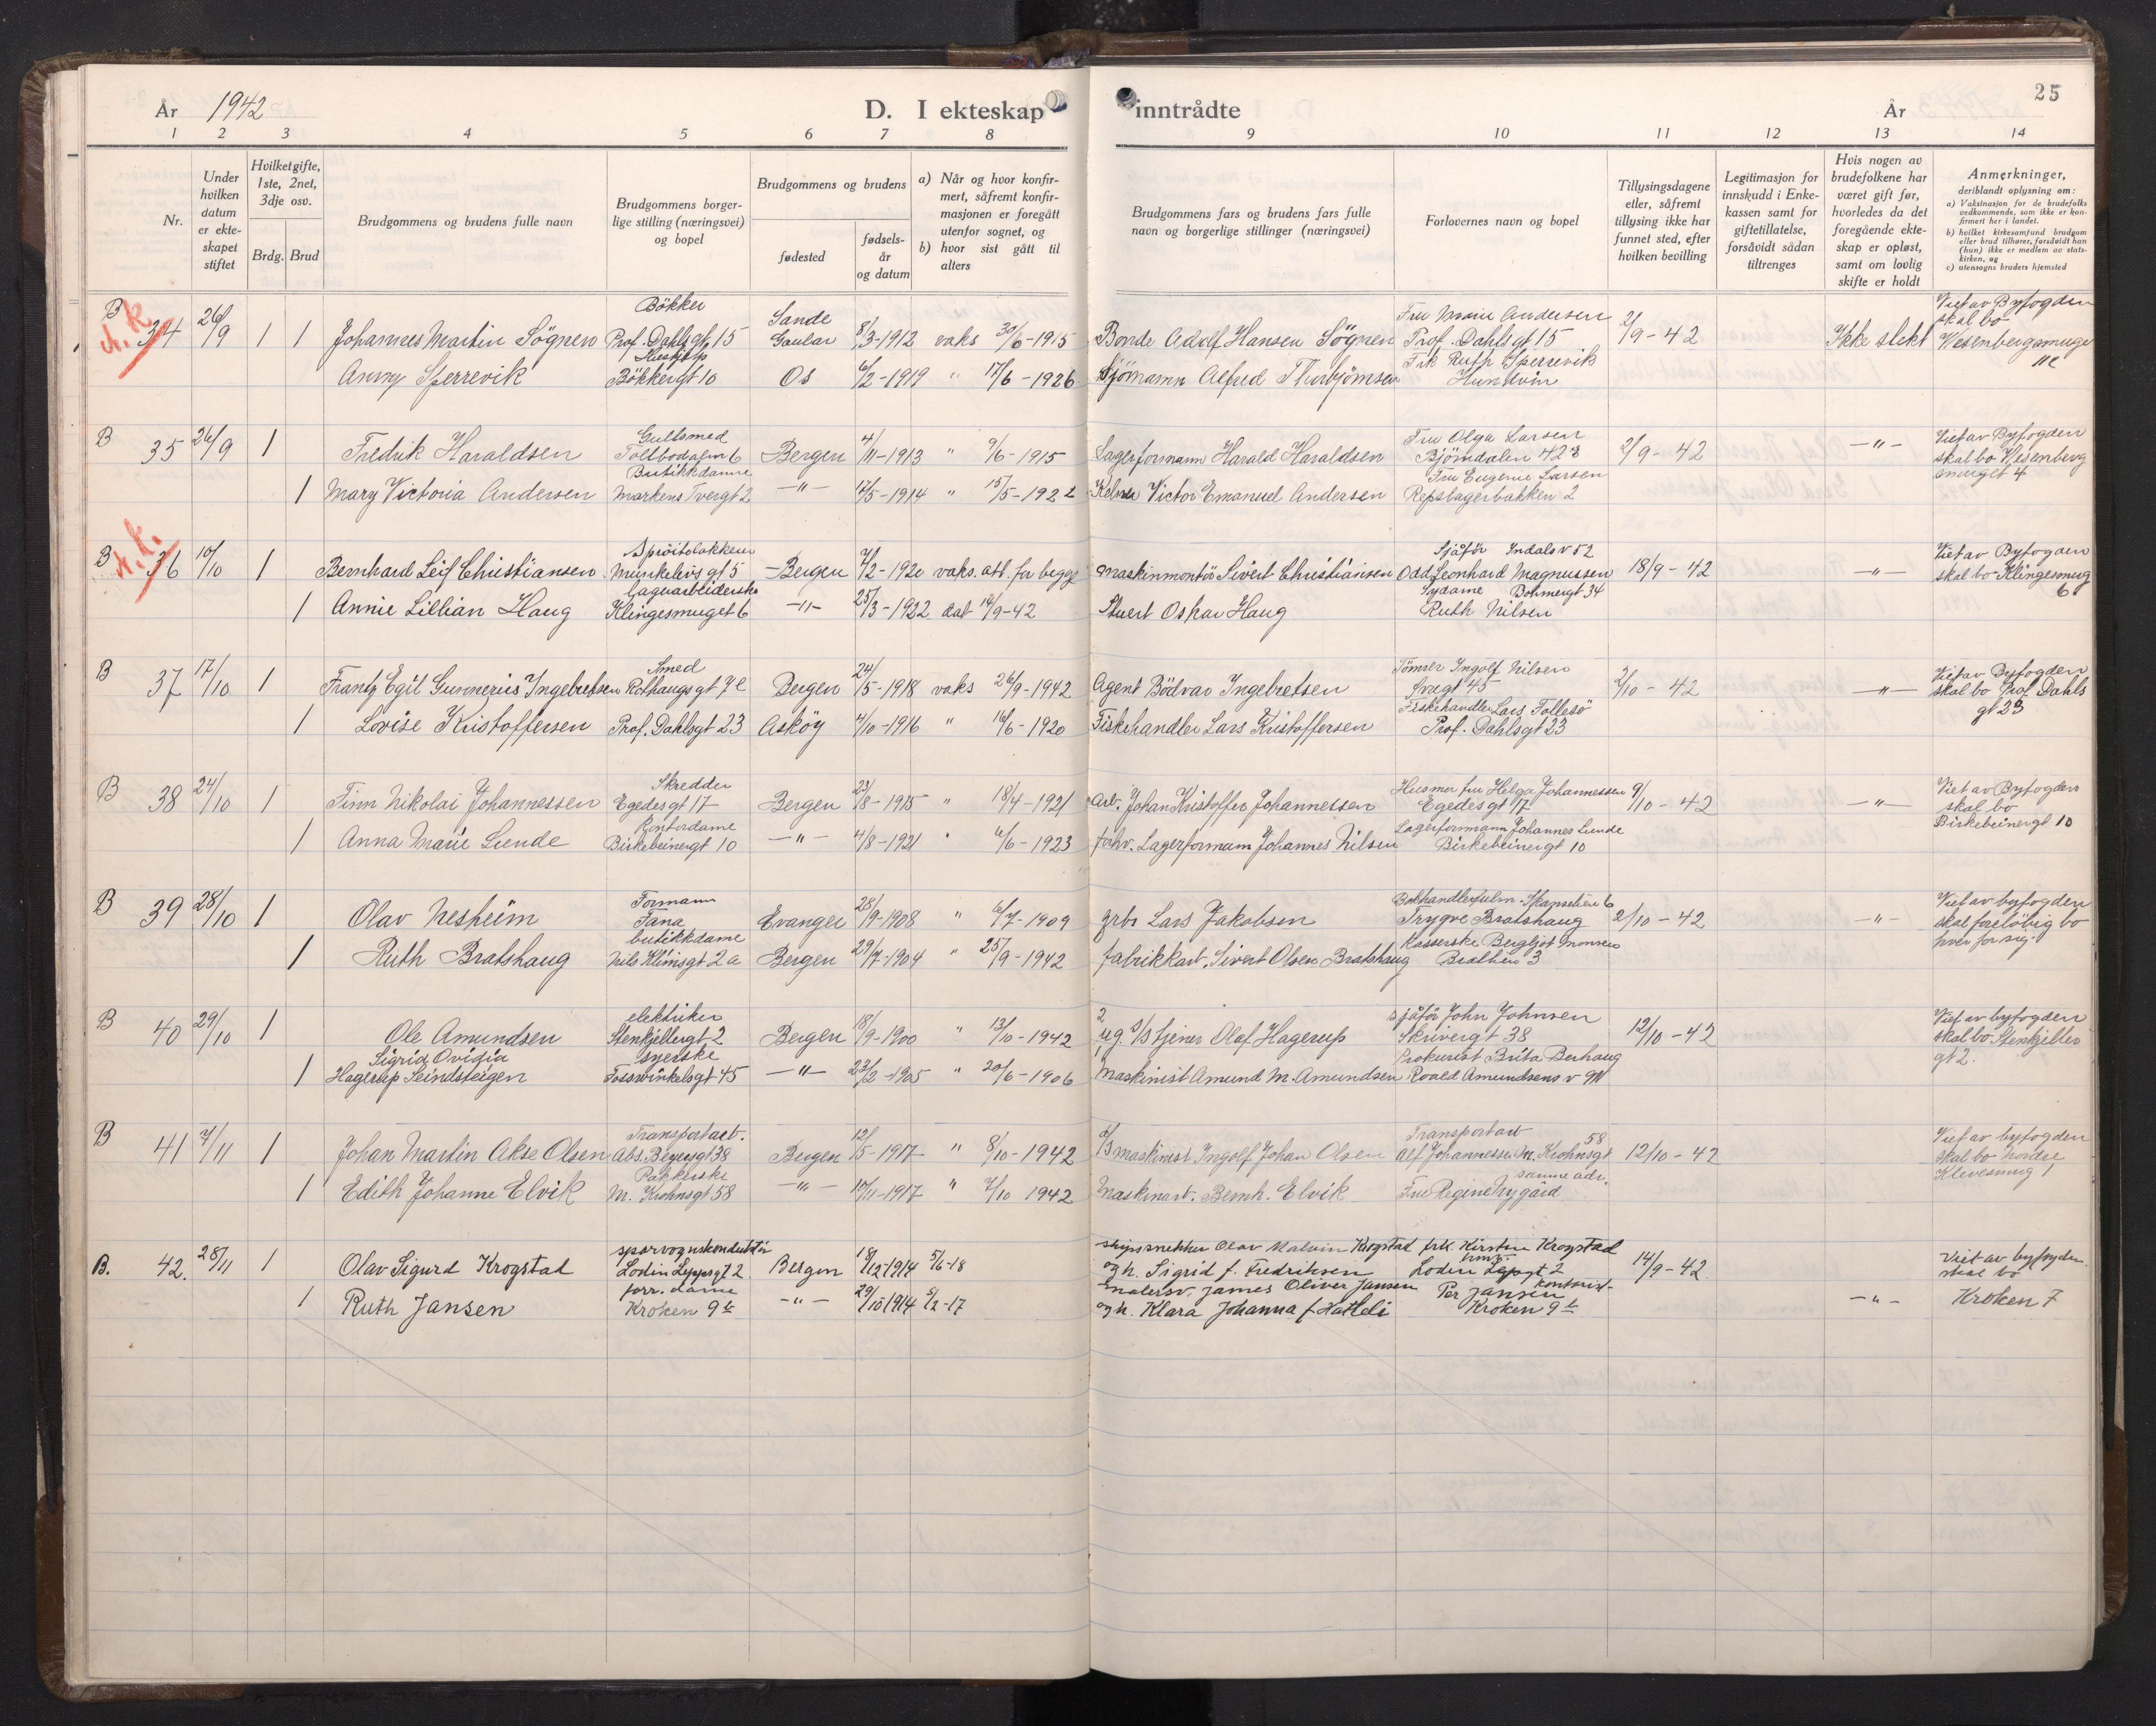 År 1942 D. I ekteskap inntrådte År 25
1 2 3 4 5 6 7 8 9 10 11 12 13 14
Nr.
Under hvilken datum er ekteskapet stiftet
Hvilket gifte, 1ste, 2net, 3dje osv.
Brdg. Brud
Brudgommens og brudens fulle navn
Brudgommens borgerlige stilling (næringsvei) og bopel
Brudgommens og brudens
fødested
fødselsår og datum
a) Når og hvor konfirmert, såfremt konfirmasjonen er foregått utenfor sognet, og
b) hvor sist gått til alters
Brudgommens fars og brudens fars fulle navn og borgerlige stillinger (næringsvei)
Forlovernes navn og bopel
Tillysingsdagene eller, såfremt tillysing ikke har funnet sted, efter hvilken bevilling
Legitimasjon for innskudd i Enkekassen samt for giftetillatelse, forsåvidt sådan tiltrenges
Hvis nogen av brudefolkene har været gift før, hvorledes da det foregående ekteskap er opløst, samt om lovlig skifte er holdt
Anmerkninger,
deriblandt oplysning om:
a) Vaksinasjon for de brudefolks vedkommende, som ikke er konfirmert her i landet.
b) hvilket kirkesamfund brudgom eller brud tilhører, forsåvidt han (hun) ikke er medlem av statskirken, og
c) utensogns bruders hjemsted
B 34 26/9 1 1 Johannes Martin Sögnen Bökker Prof. Dahlsgt 15 Sande Gaular 8/3-1912 vaks 30/6-1915 Bonde Adolf Hansen Sögnen Fru Marie Andersen Prof. Dahlsgt 15 2/9-42 Ikke slekt Viet av Byfogden skal bo Wesenbergsmuget
Anny Sperrevik Bökkergt 10 Os 6/2-1919 " 17/6-1926 Sjömann Alfred Thorbjörnsen Frk Ruth Sperrevik Hundvin
B 35 26/9 1 Fredrik Haraldsen Gullsmed Tollbodalm 6 Bergen 4/11-1913 " 9/6-1915 Lagerformann Harald Haraldsen Fru Olga Larsen Björndalen 423 2/9-42 -"- Viet av Byfogden skal bo Wesenberg smuget 4
1 Mary Victoria Andersen Butikkdame Markens Tvergt 2 -"- 17/5-1914 " 15/5-1922 Kelner Victor Emanuel Andersen Fru Eugenie Larsen Repslagerbakken 2
B 36 10/10 1 Bernhard Leif Christiansen Spröitelakkerer Munkelivs gt 5 Bergen 7/2-1920 vaks. att. for begge Maskinmontör Sivert Christiansen Sjåför Indalsv 52 Odd Leonhard Magnussen 18/9-42 -"- Viet av Byfogden skal bo Klingesmug 6
1 Annie Lillian Haug Lagerarbeiderske Klingesmuget 6 -"- 25/3-1922 dat 14/9-42 Stuert Oskar Haug Sydame Bohmergt 34 Ruth Nilsen
B 37 17/10 1 Frantz Egil Gunnerius Ingebretsen Smed Rothaugsgt 7c Bergen 24/5-1918 vaks 26/9-1942 Agent Bödvar Ingebretsen Tömrer Ingolf Nilsen 45 2/10-42 -"- Viet av Byfogden skal bo Prof Dahls gt 23
1 Lovise Kristoffersen Prof. Dahlsgt 23 Asköy 4/10-1916 " 16/6-1920 Fiskehandler Lars Kristoffersen Fiskehandler Lars Follesö Prof. Dahlsgt 23
B 38 24/10 1 Finn Nikolai Johannessen Skredder Egedesgt 17 Bergen 23/8-1915 " 18/4-1921 Arb. Johan Kristoffer Johannessen Husmor fru Helga Johannessen Egedesgt 17 9/10-42 -"- Viet av Byfogden skal bo Birkebeinergt 10
1 Anna Marie Lunde Kontordame Birkebeinergt 10 -"- 4/8-1921 " 6/6-1923 forhv. Lagerformann Johannes Nilsen Lagerformann Johannes Lunde Birkebeinergt 10
B 39 28/10 1 Olav Nesheim Formann Fana Evanger 28/9-1908 " 6/7-1909 grbr Lars Jakobsen Trygve Bratshaug 2/10-42 -"- Viet av byfogden skal foreløbig bo hver for sig.
1 Ruth Bratshaug butikkdame Nils Klimsgt 2a Bergen 29/7-1904 " 25/9-1942 fabrikkarb. Sivert Olsen Bratshaug Kasserske Bergljot Monsen Bratlien 3
B 40 29/10 1 Ole Amundsen elektriker Stenkjellergt 2 Bergen 18/9-1900 " 13/10-1942 2 ug. S/S tjener Olaf Hagerup sjåför John Johnsen Skivergt 38 12/10-42 Viet av byfogden skal bo Stenkjeller gt 2.
1 Sigrid Ovidia Hagerup Seindsteigen syerske Fosswinkelsgt 45 -"- 23/2-1905 " 20/6-1906 1 Maskinist Amund M. Amundsen Prokurist Brita Berhaug Roald Amundsens v
B 41 7/11 1 Johan Martin Akse Olsen Transportarb. Abs. Beyersgt 38 Bergen 12/5-1917 " 8/10-1942 d/s maskinist Ingolf Johan Olsen Transportarb Alf Johannessen M. Krohnsgt 58 12/10-42 Viet av byfogden skal bo Nordre Klevesmug 1
1 Edith Johanne Elvik Pakkerske M. Krohnsgt 58 -"- 10/11-1917 " 7/10 1942 Maskinarb. Bernh. Elvik samme adr. Fru Regine Nygård
B. 42. 28/11 1 Olav Sigurd Krogstad sporvognskonduktör Lodin Leppsgt 2 Bergen 18/12-1914 5/6-18 skipssnekker Olav Malvin Krogstad og h. Sigrid f. Fredriksen frk. Kirsten Krogstad Lodin Leppgt 2 14/9-42 Viet av byfogden. skal bo
1 Ruth Jansen forr. dame Kroken 9b -"- 29/10 1914 5/2-17 James Oliver Jansen og h. Klara Johanna f. Hatleli Per Jansen kontorist Kroken 9b -"- Kroken 7